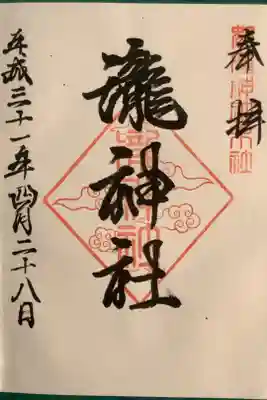 奉拝
瀧神社
平成三十一年四月二十八日